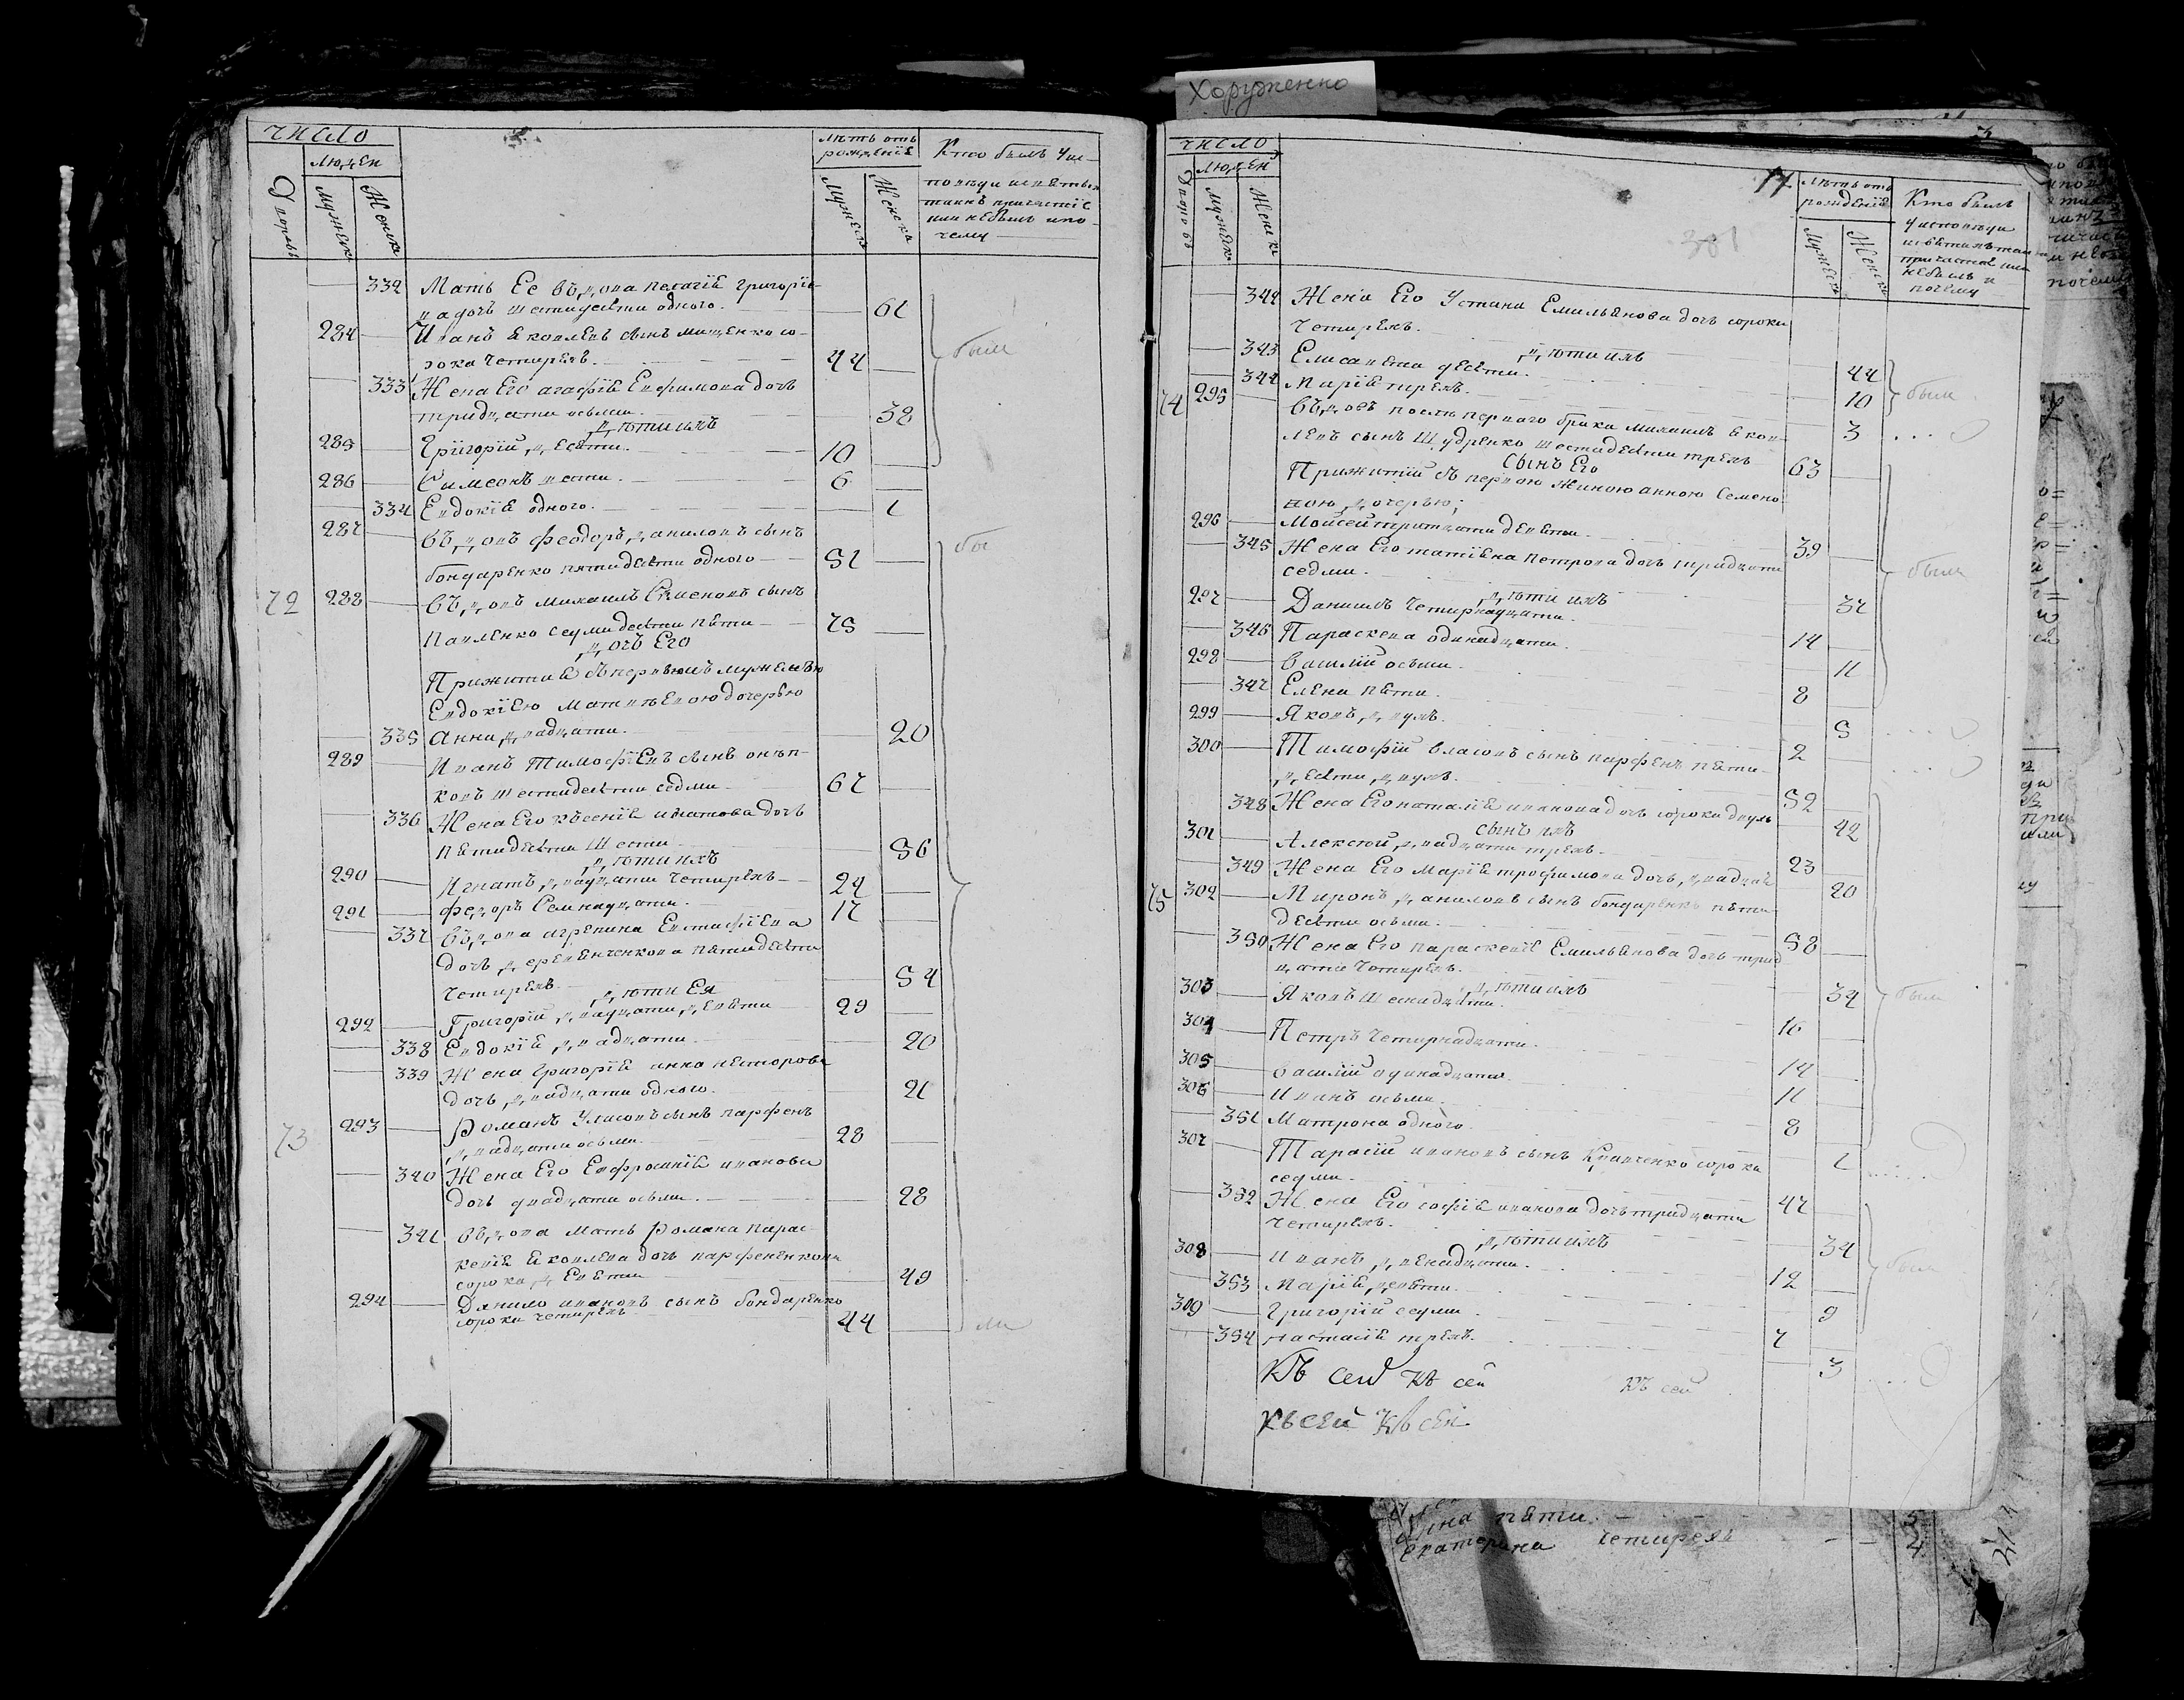 Хоруженко
число
людей
Дворовъ
Мужеска
Женска
лѣтъ отъ
рожденїя
Мужеска
Женска
Кто былъ у ис-
повѣди и святыхъ
таинъ причастїя
или не былъ и по-
чему
332 Мать Ее вдова Пелагїя григорїе-
ва дочь шестидесяти одного. 61
284 Иванъ Яковлевъ сынъ мищенко со-
рока четырехъ. 44
были
333 Жена Его агафїя Евфимова дочь
тридцати осьми. 38
дѣти ихъ
285 Григорїй десяти. 10
286 Симеонъ шести. 6
334 Евдокїя одного. 1
287 вдовъ Феодоръ даниловъ сынъ
бондаренко пятидесяти одного 51
72 288 вдовъ Михаилъ сынъ
Павленко седмидесяти пяти 75
дочь Его
Прижитая съ
Евдокїею Матвѣевою дочерью
335 Анна двадцати. 20
289 Иванъ Тимофѣевъ сынъ
шестидесяти седми 67
336 Жена Его ксенїя игнатова дочь
пятидесяти шести 56
дѣти ихъ
290 Игнатъ двадцати четырехъ 24
291 Федоръ Семнадцати. 17
337 вдова агрепина Евстафїева
дочь пятидесяти
четырехъ 54
дѣти Ея
292 Григорїй двадцати девяти 29
338 Евдокїя двадцати. 20
339 Жена Григорїя анна несторова
дочь двадцати одного. 21
73 293 Романъ Уласовъ сынъ парфенъ
двадцати осьми. 28
340 Жена Его Евфросинїя иванова
дочь двадцати осьми. 28
341 вдова мать Романа Парас-
кевїя Яковлева дочь парфененкова
сорока девяти 49
294 Данило ивановъ сынъ бондаренко
сорока четырехъ 44
ли
число
людей
Дворовъ
Мужеска
Женска
17
301
лѣтъ отъ
рожденїя
Мужеска
Женска
Кто былъ
у исповѣди
и святыхъ таи-
причастїя или
не былъ и
почему
342 Жена Его Устина Емильянова дочь сорока
четырехъ. 44
дѣти ихъ
343 Елисавета десяти. 10
344 Марїя трехъ. 3
были
74 295 вдовъ послѣ перваго брака михаилъ Яков-
левъ сынъ Щудренко шестидесяти трехъ 63
сынъ Его
Прижитїй съ первою жиною анною Семено-
вою дочерью;
296 Моисей тритцати девяти. 39
345 Жена Его татїяна петрова дочь тридцати
седми. 37
были
дѣти ихъ
297 Данїилъ четырнадцати. 14
346 Параскева одинадцати. 11
298 василїй осьми. 8
347 Елена пяти. 5
299 Яковъ двухъ. 2
300 Тимофїй власовъ сынъ парфенъ пяти-
десяти двухъ. 52
348 Жена Его наталїя иванова дочь сорока двухъ 42
сынъ ихъ
301 Алексѣй двадцати трехъ. 23
349 Жена Его Марїя трофимова дочь двадцати 20
75 302 Миронъ даниловъ сынъ бондаренко пяти-
десяти осьми. 58
350 Жена Его параскевїя Емильянова дочь трид-
цати четырехъ. 34
дѣти ихъ
были
303 Яковъ шеснадцяти. 16
304 Петръ четырнадцати. 14
305 василїй одинадцати. 11
306 Иванъ осьми. 8
351 Матрона одного. 1
307 Тарасїй ивановъ сынъ Кравченко сорока
седми. 47
352 Жена Его софїя иванова дочь тридцати
четырехъ. 34
дѣти ихъ
308 Иванъ двенадцати. 12
были
353 Марїя девяти. 9
309 Григорїй седми. 7
354 настасїя трехъ. 3
Къ сей Къ сей Къ сей
Къ сей Къ сей
пяти. 5
Екатерина четырехъ 4